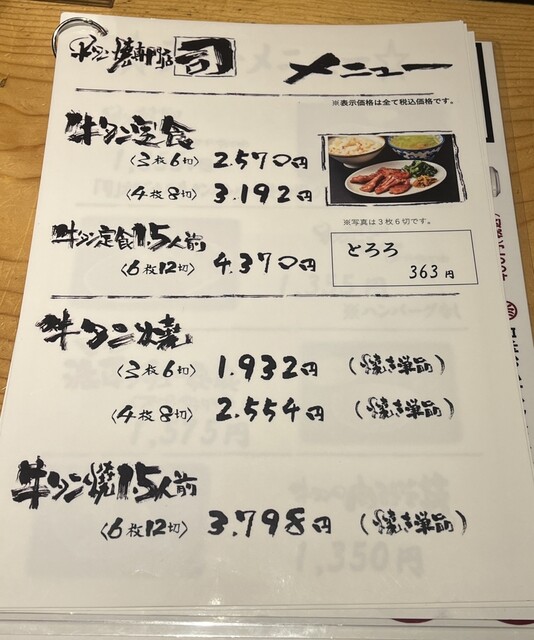 牛タン焼専門店 司
メニュー
※表示価格は全て税込価格です。
牛タン定食
〈3枚6切〉 2.570円
〈4枚8切〉 3.192円
※写真は3枚6切です。
牛タン定食1.5人前
〈6枚12切〉 4.370円
とろろ
363円
牛タン焼
〈3枚6切〉 1.932円 (焼き単品)
〈4枚8切〉 2.554円 (焼き単品)
牛タン焼1.5人前
〈6枚12切〉 3.798円 (焼き単品)
1,350円